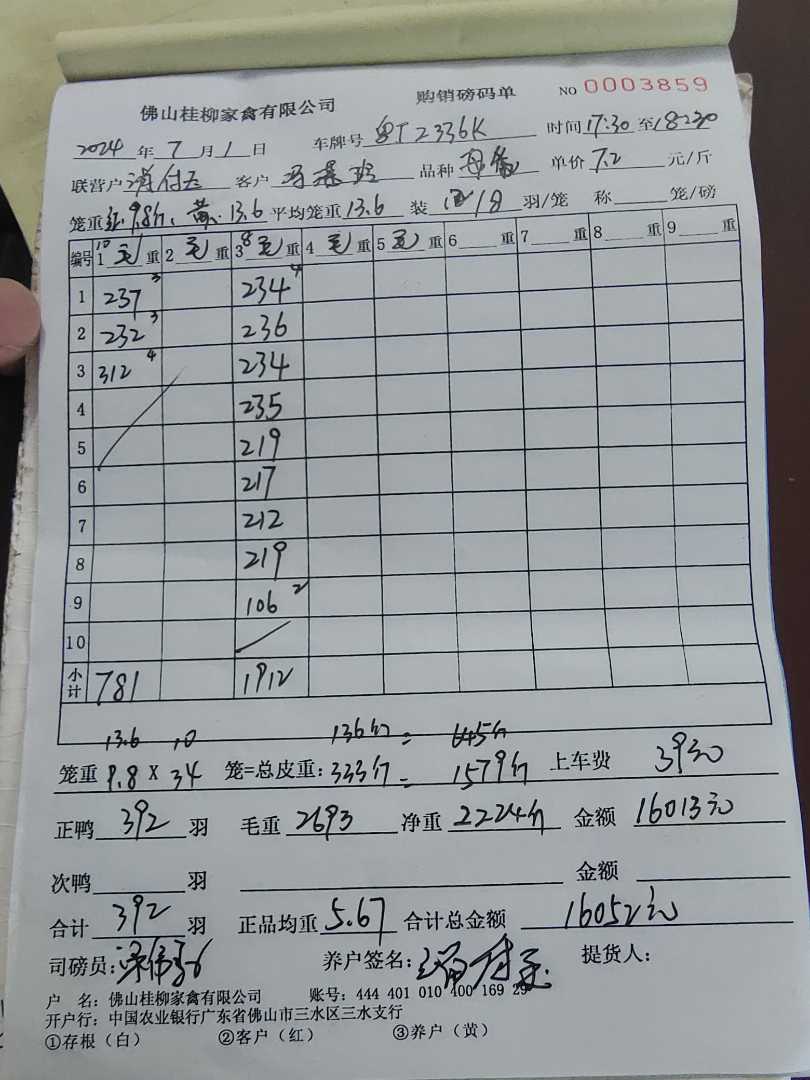 佛山桂柳家禽有限公司 购销磅码单 NO 0003859
2024 年 7 月 1 日 车牌号 粤T2336K 时间 17:30 至 18:230
联营户 付 客户 冯 品种 单价 7.2 元/斤
笼重 红.9.8斤、黄.13.6 平均笼重 13.6 装 /8 羽/笼 称 笼/磅
编号 10 1 毛 重 2 毛 重 8 3 毛 重 4 毛 重 5 毛 重 6 重 7 重 8 重 9 重
1 237 3 234 4
2 232 3 236
3 312 4 234
4 235
5 219
6 217
7 212
8 219
9 106 2
10
小计 781 1912
13.6 10 136斤 = 645斤
笼重 9.8 X 34 笼=总皮重: 333斤 = 1579斤 上车费 39元
正鸭 392 羽 毛重 2693 净重 2224斤 金额 16013元
次鸭 羽 金额
合计 392 羽 正品均重 5.67 合计总金额 16052元
司磅员: 梁 养户签名: 付 提货人:
户 名: 佛山桂柳家禽有限公司 账号: 444 401 010 400 169 29
开户行: 中国农业银行广东省佛山市三水区三水支行
①存根（白） ②客户（红） ③养户（黄）